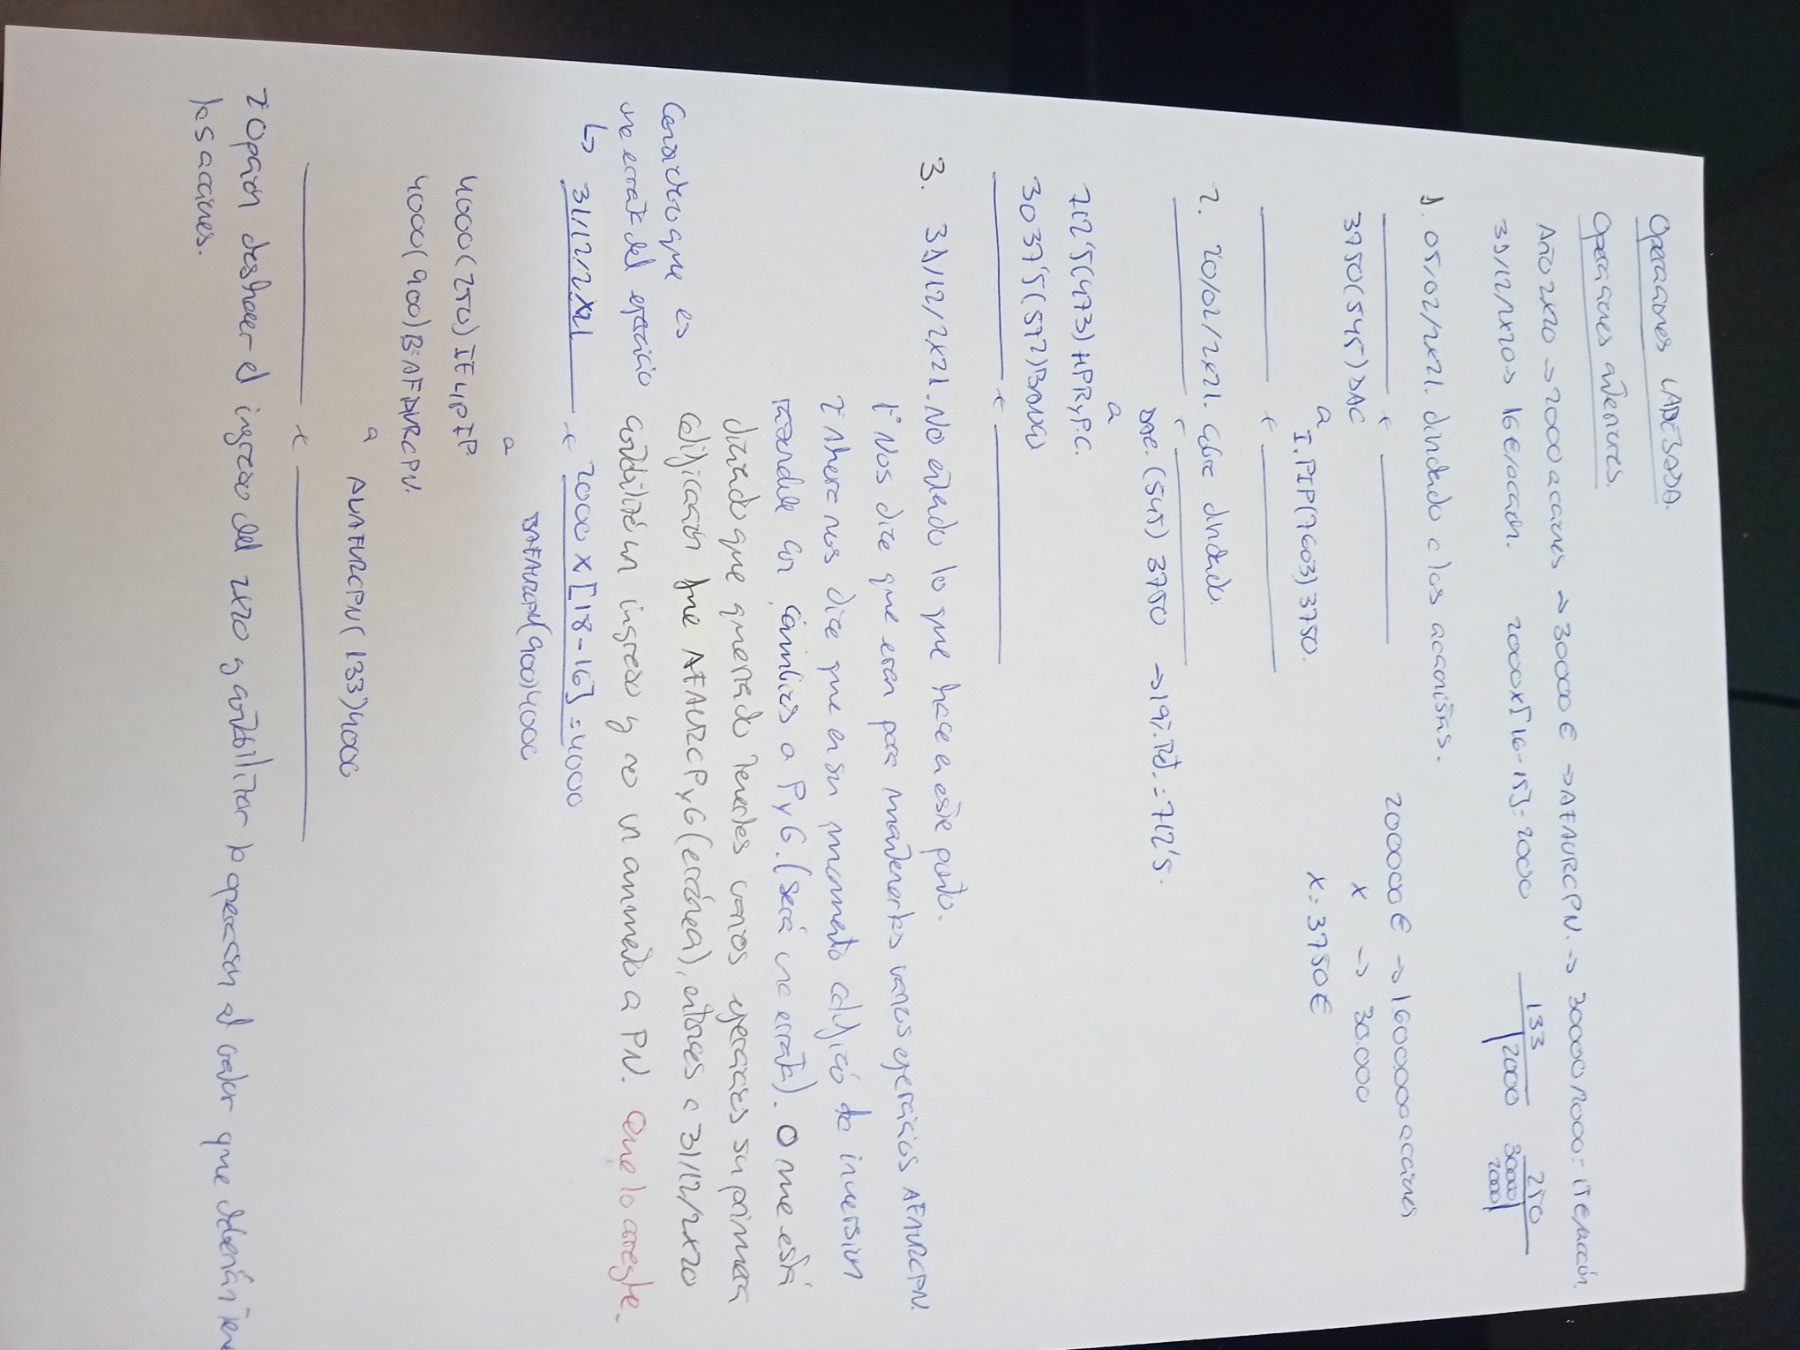 Operaciones LADESADA.
Operaciones anteriores.
Año 2x20 → 2000 acciones → 30000€ → AFAVRCPN. → 30000/2000 = 15€/acción.
31/12/2x20 → 16€/acción. 2000x[16-15]=2000 133 | 2000 250 30000 | 2000 |
1. 05/02/2x21. dividendo a los accionistas.
200000€ → 1600000 acciones
3750(545)DAC x → 30.000
a
I.PIP(7603)3750. x = 3750€
2. 20/02/2x21. cobro dividendo.
(545) 3750 → 19% Ret. = 712'5.
a
712'5(473)HPRyPC.
3037'5(572)Banco
3. 31/12/2x21. No entiendo lo que hace en este punto.
1º Nos dice que eran para mantenerlos varios ejercicios AFAVRCPN.
2º Ahora nos dice que en su momento calificó de inversión
razonable con cambios a PyG. (será una errata). O me está
diciendo que queriendo tenerlos varios ejercicios su primera
calificación fue AFAVRCPyG (errónea), entonces a 31/12/2x20
contabilizó un ingreso y no un aumento a PN. Que lo arregle.
Considero que es
una errata del ejercicio
↳ 31/12/2x21 2000 x [18-16] = 4000
BAFAVRCPN(900)4000
a
4000(250)IFL/PIP
4000(900)BAFAVRCPN.
a
AVAFVRCPN(133)4000
2 Opción deshacer el ingreso del 2x20 y contabilizar la operación al valor que deberían
las acciones.